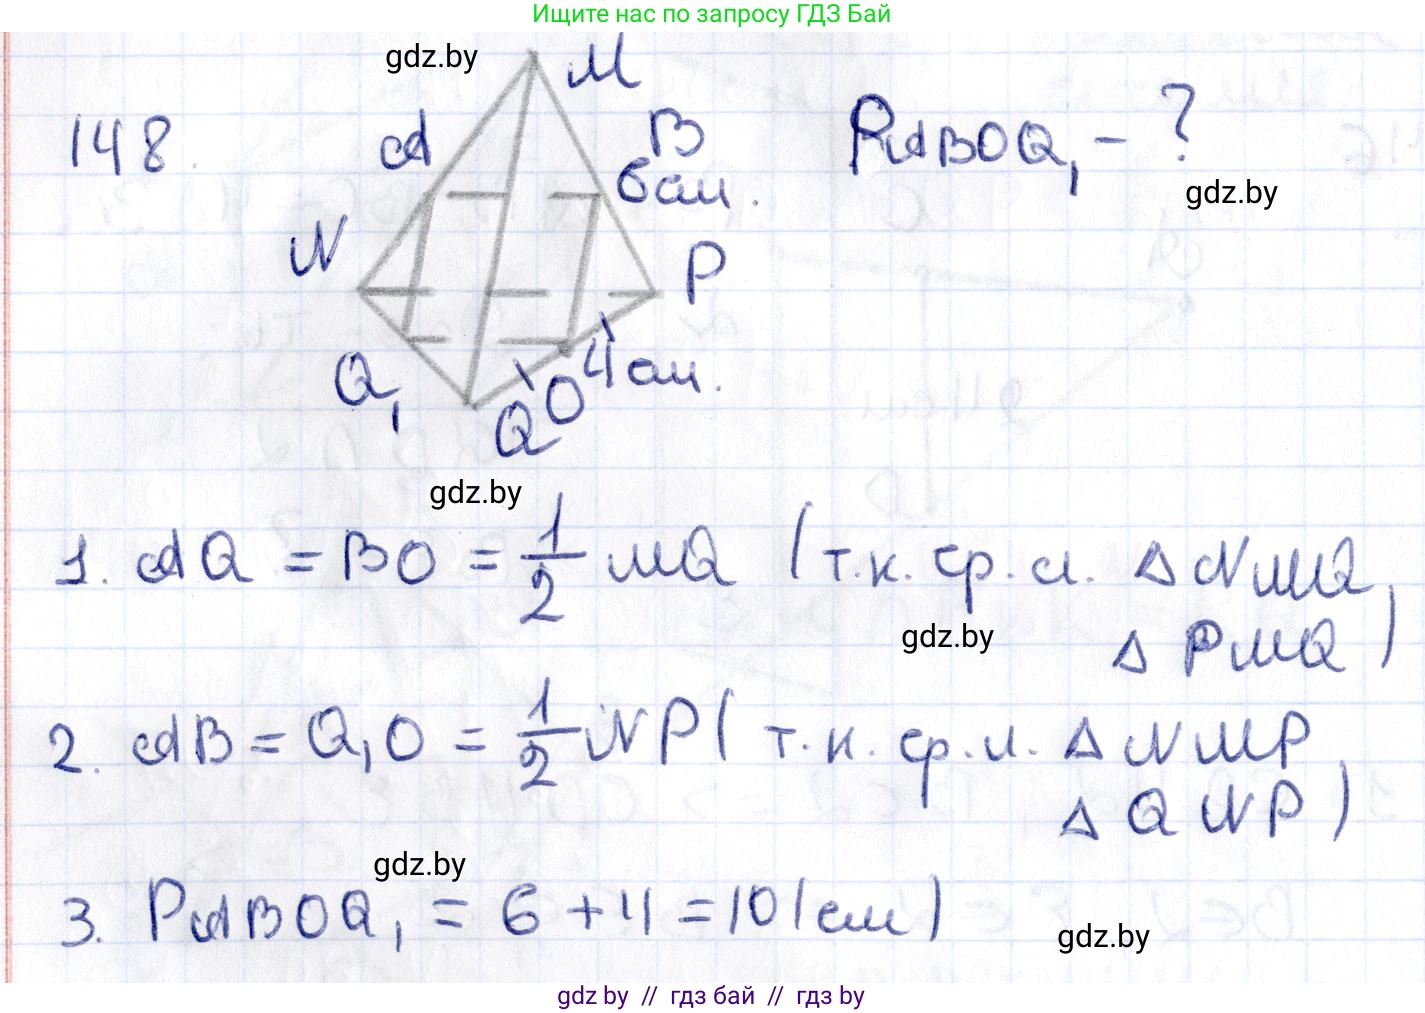 Ищите нас по запросу ГДЗ Бай
gdz.by
M
148.
A
B
P_ABOQ₁ - ?
6 см.
gdz.by
N
P
Q₁
4 см.
O
Q
gdz.by
1. AQ = BO = 1/2 MQ (т.к. ср.л. △ NMQ,
gdz.by
△ PMQ)
2. AB = Q₁O = 1/2 NP (т.к. ср.л. △ NMP,
△ QNP)
gdz.by
3. P_ABOQ₁ = 6 + 4 = 10 (см)
gdz.by
gdz by // гдз бай // гдз by